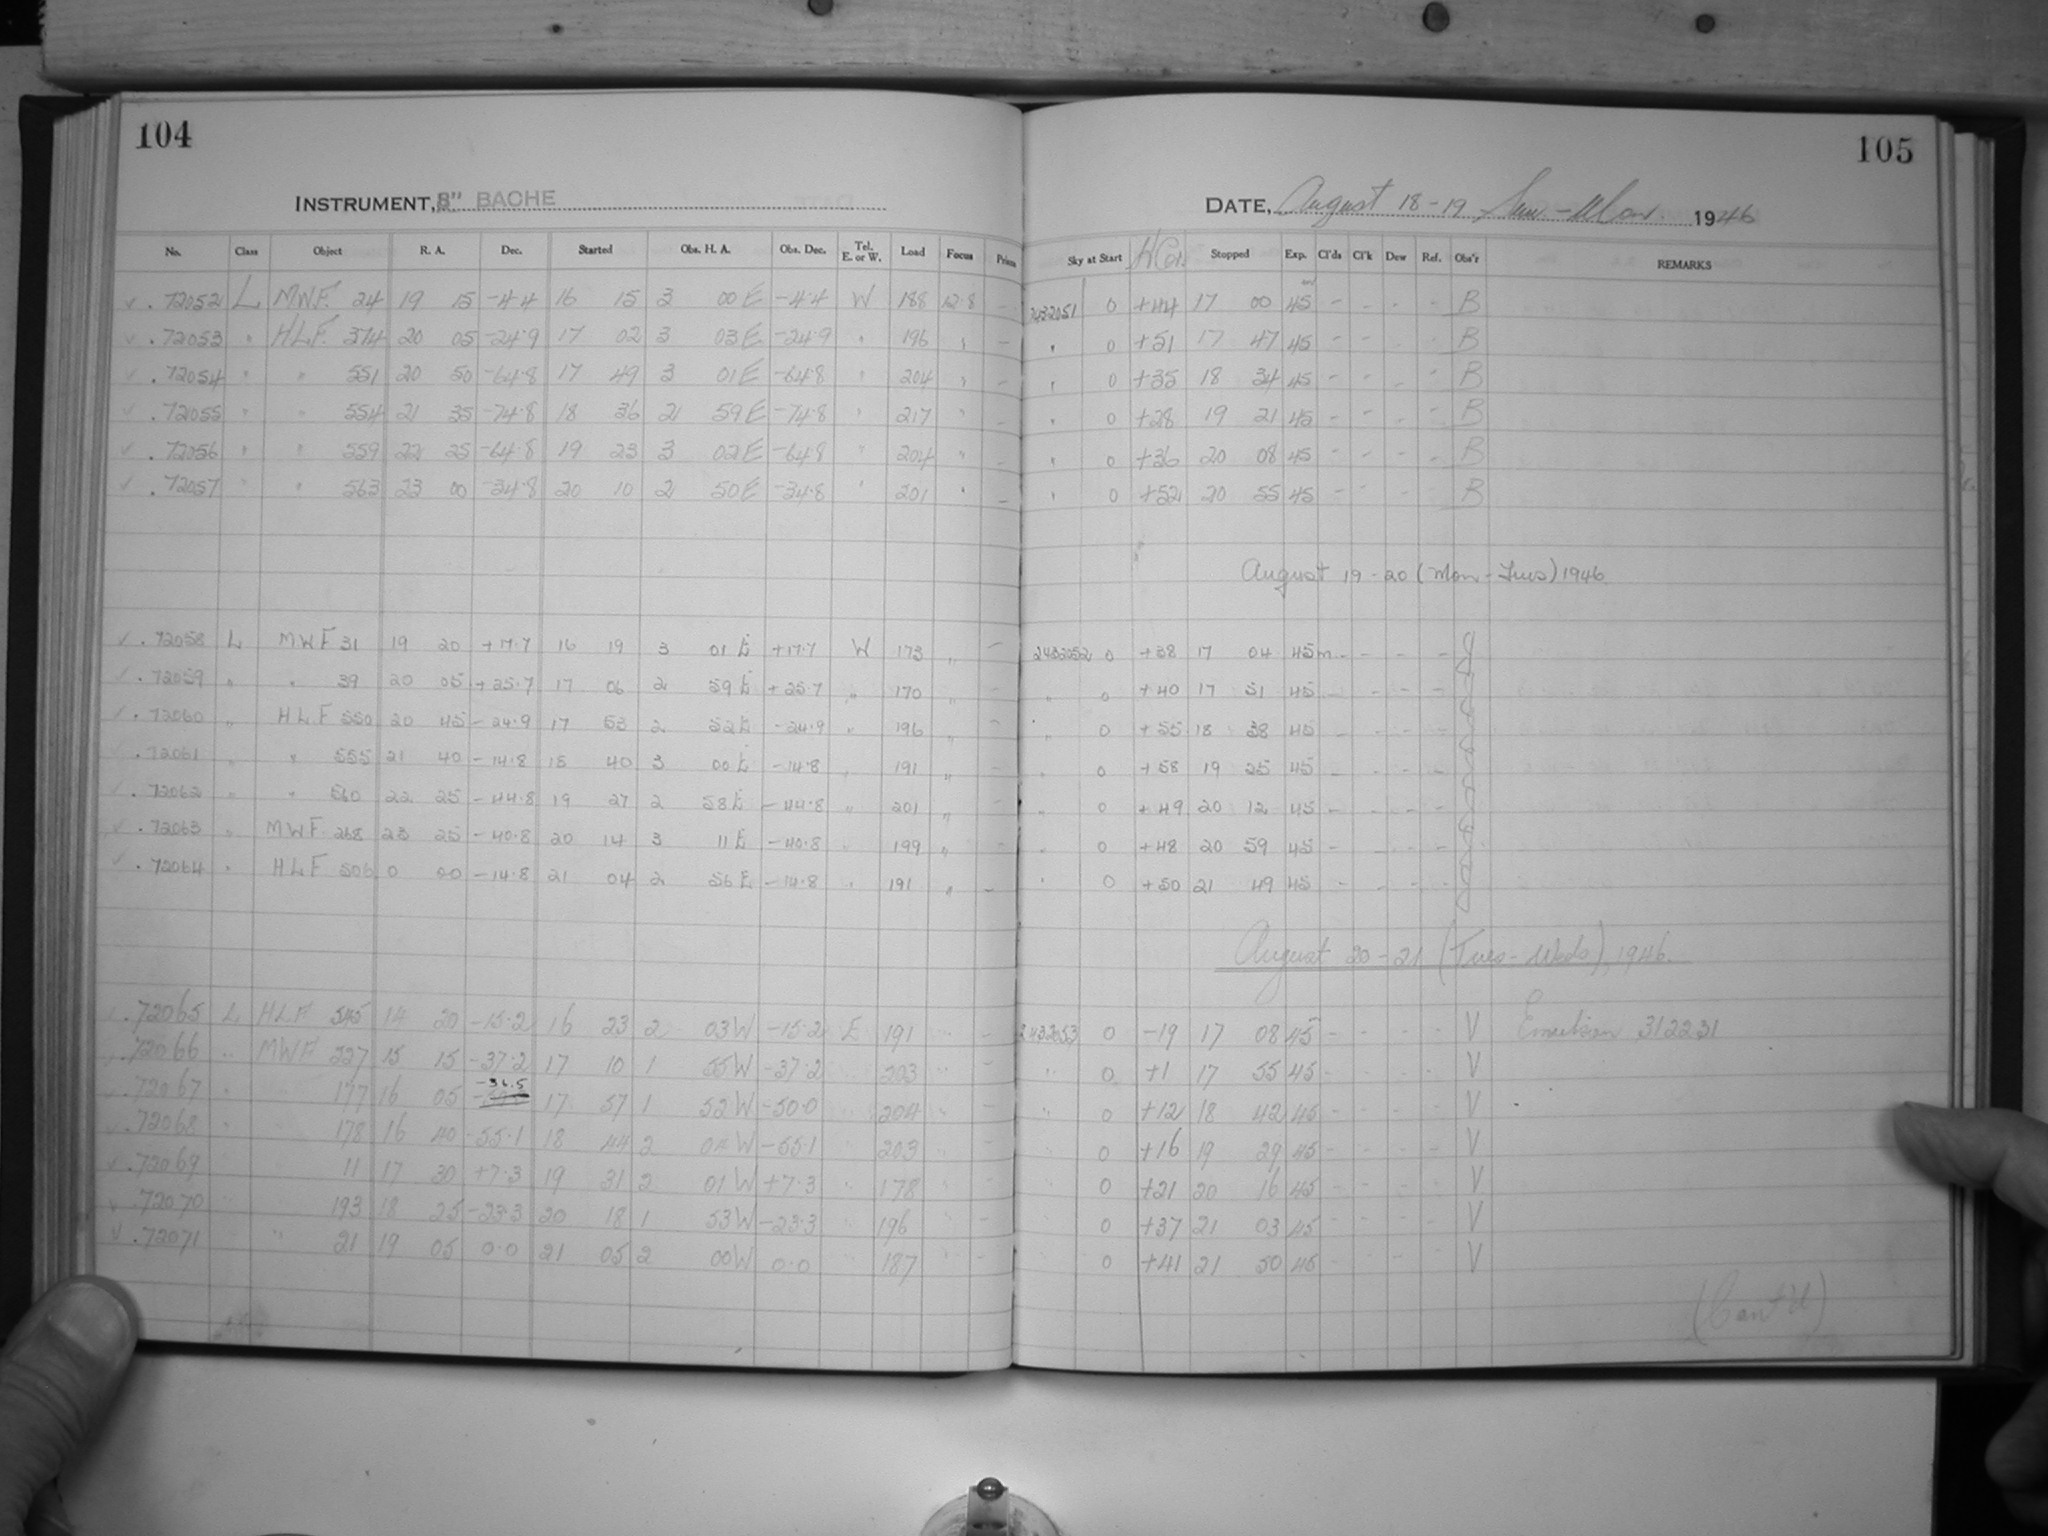 104
INSTRUMENT, 8" BACHE
No. Class Object R. A. Dec. Started Obs. H. A. Obs. Dec. Tel. E. or W. Load Focus Prism
. 72052 L MWF 24 19 15 -4.4 16 15 3 00 E -4.4 W 188 12.8 -
. 72053 " HLF 374 20 05 -24.9 17 02 3 03 E -24.9 " 196 " -
. 72054 " " 551 20 50 -64.8 17 49 3 01 E -64.8 " 204 " -
. 72055 " " 554 21 35 -74.8 18 36 2 59 E -74.8 " 217 " -
. 72056 " " 559 22 25 -64.8 19 23 3 02 E -64.8 " 204 " -
. 72057 " " 563 23 00 -34.8 20 10 2 50 E -34.8 " 201 " -
. 72058 L MWF 31 19 20 +17.7 16 19 3 01 E +17.7 W 173 " -
. 72059 " " 39 20 05 +25.7 17 06 2 59 E +25.7 " 170 " -
. 72060 " HLF 550 20 45 -24.9 17 53 2 52 E -24.9 " 196 " -
. 72061 " " 555 21 40 -14.8 18 40 3 00 E -14.8 " 191 " -
. 72062 " " 560 22 25 -44.8 19 27 2 58 E -44.8 " 201 " -
. 72063 " MWF 268 23 25 -40.8 20 14 3 11 E -40.8 " 199 " -
. 72064 " HLF 506 0 00 -14.8 21 04 2 56 E -14.8 " 191 " -
. 72065 L HLF 545 14 20 -15.2 16 23 2 03 W -15.2 E 191 " -
. 72066 " MWF 227 15 15 -37.2 17 10 1 55 W -37.2 " 203 " -
-36.5
. 72067 " " 177 16 05 17 57 1 52 W -50.0 " 204 " -
. 72068 " " 178 16 40 -55.1 18 44 2 04 W -55.1 " 203 " -
. 72069 " " 11 17 30 +7.3 19 31 2 01 W +7.3 " 178 " -
. 72070 " " 193 18 25 -23.3 20 18 1 53 W -23.3 " 196 " -
. 72071 " " 21 19 05 0.0 21 05 2 00 W 0.0 " 187 " -
105
DATE, August 18-19 Sun-Mon. 1946
Sky at Start Stopped Exp. Cl'ds Cl'k Dew Ref. Obs'r REMARKS
2432051 0 +44 17 00 45 m - - - - B
" 0 +51 17 47 45 - - - - B
" 0 +35 18 34 45 - - - - B
" 0 +28 19 21 45 - - - - B
" 0 +36 20 08 45 - - - - B
" 0 +52 20 55 45 - - - - B
August 19-20 (Mon-Tues) 1946
2432052 0 +38 17 04 45m - - - -
" 0 +40 17 51 45 - - - -
" 0 +55 18 38 45 - - - -
" 0 +58 19 25 45 - - - -
" 0 +49 20 12 45 - - - -
" 0 +48 20 59 45 - - - -
" 0 +50 21 49 45 - - - -
August 20-21 (Tues-Weds), 1946.
2432053 0 -19 17 08 45 - - - - V Emulsion 312231
" 0 +1 17 55 45 - - - - V
" 0 +12 18 42 45 - - - - V
0 +16 19 29 45 - - - - V
0 +21 20 16 45 - - - - V
0 +37 21 03 45 - - - - V
0 +41 21 50 45 - - - - V
(Cont'd)